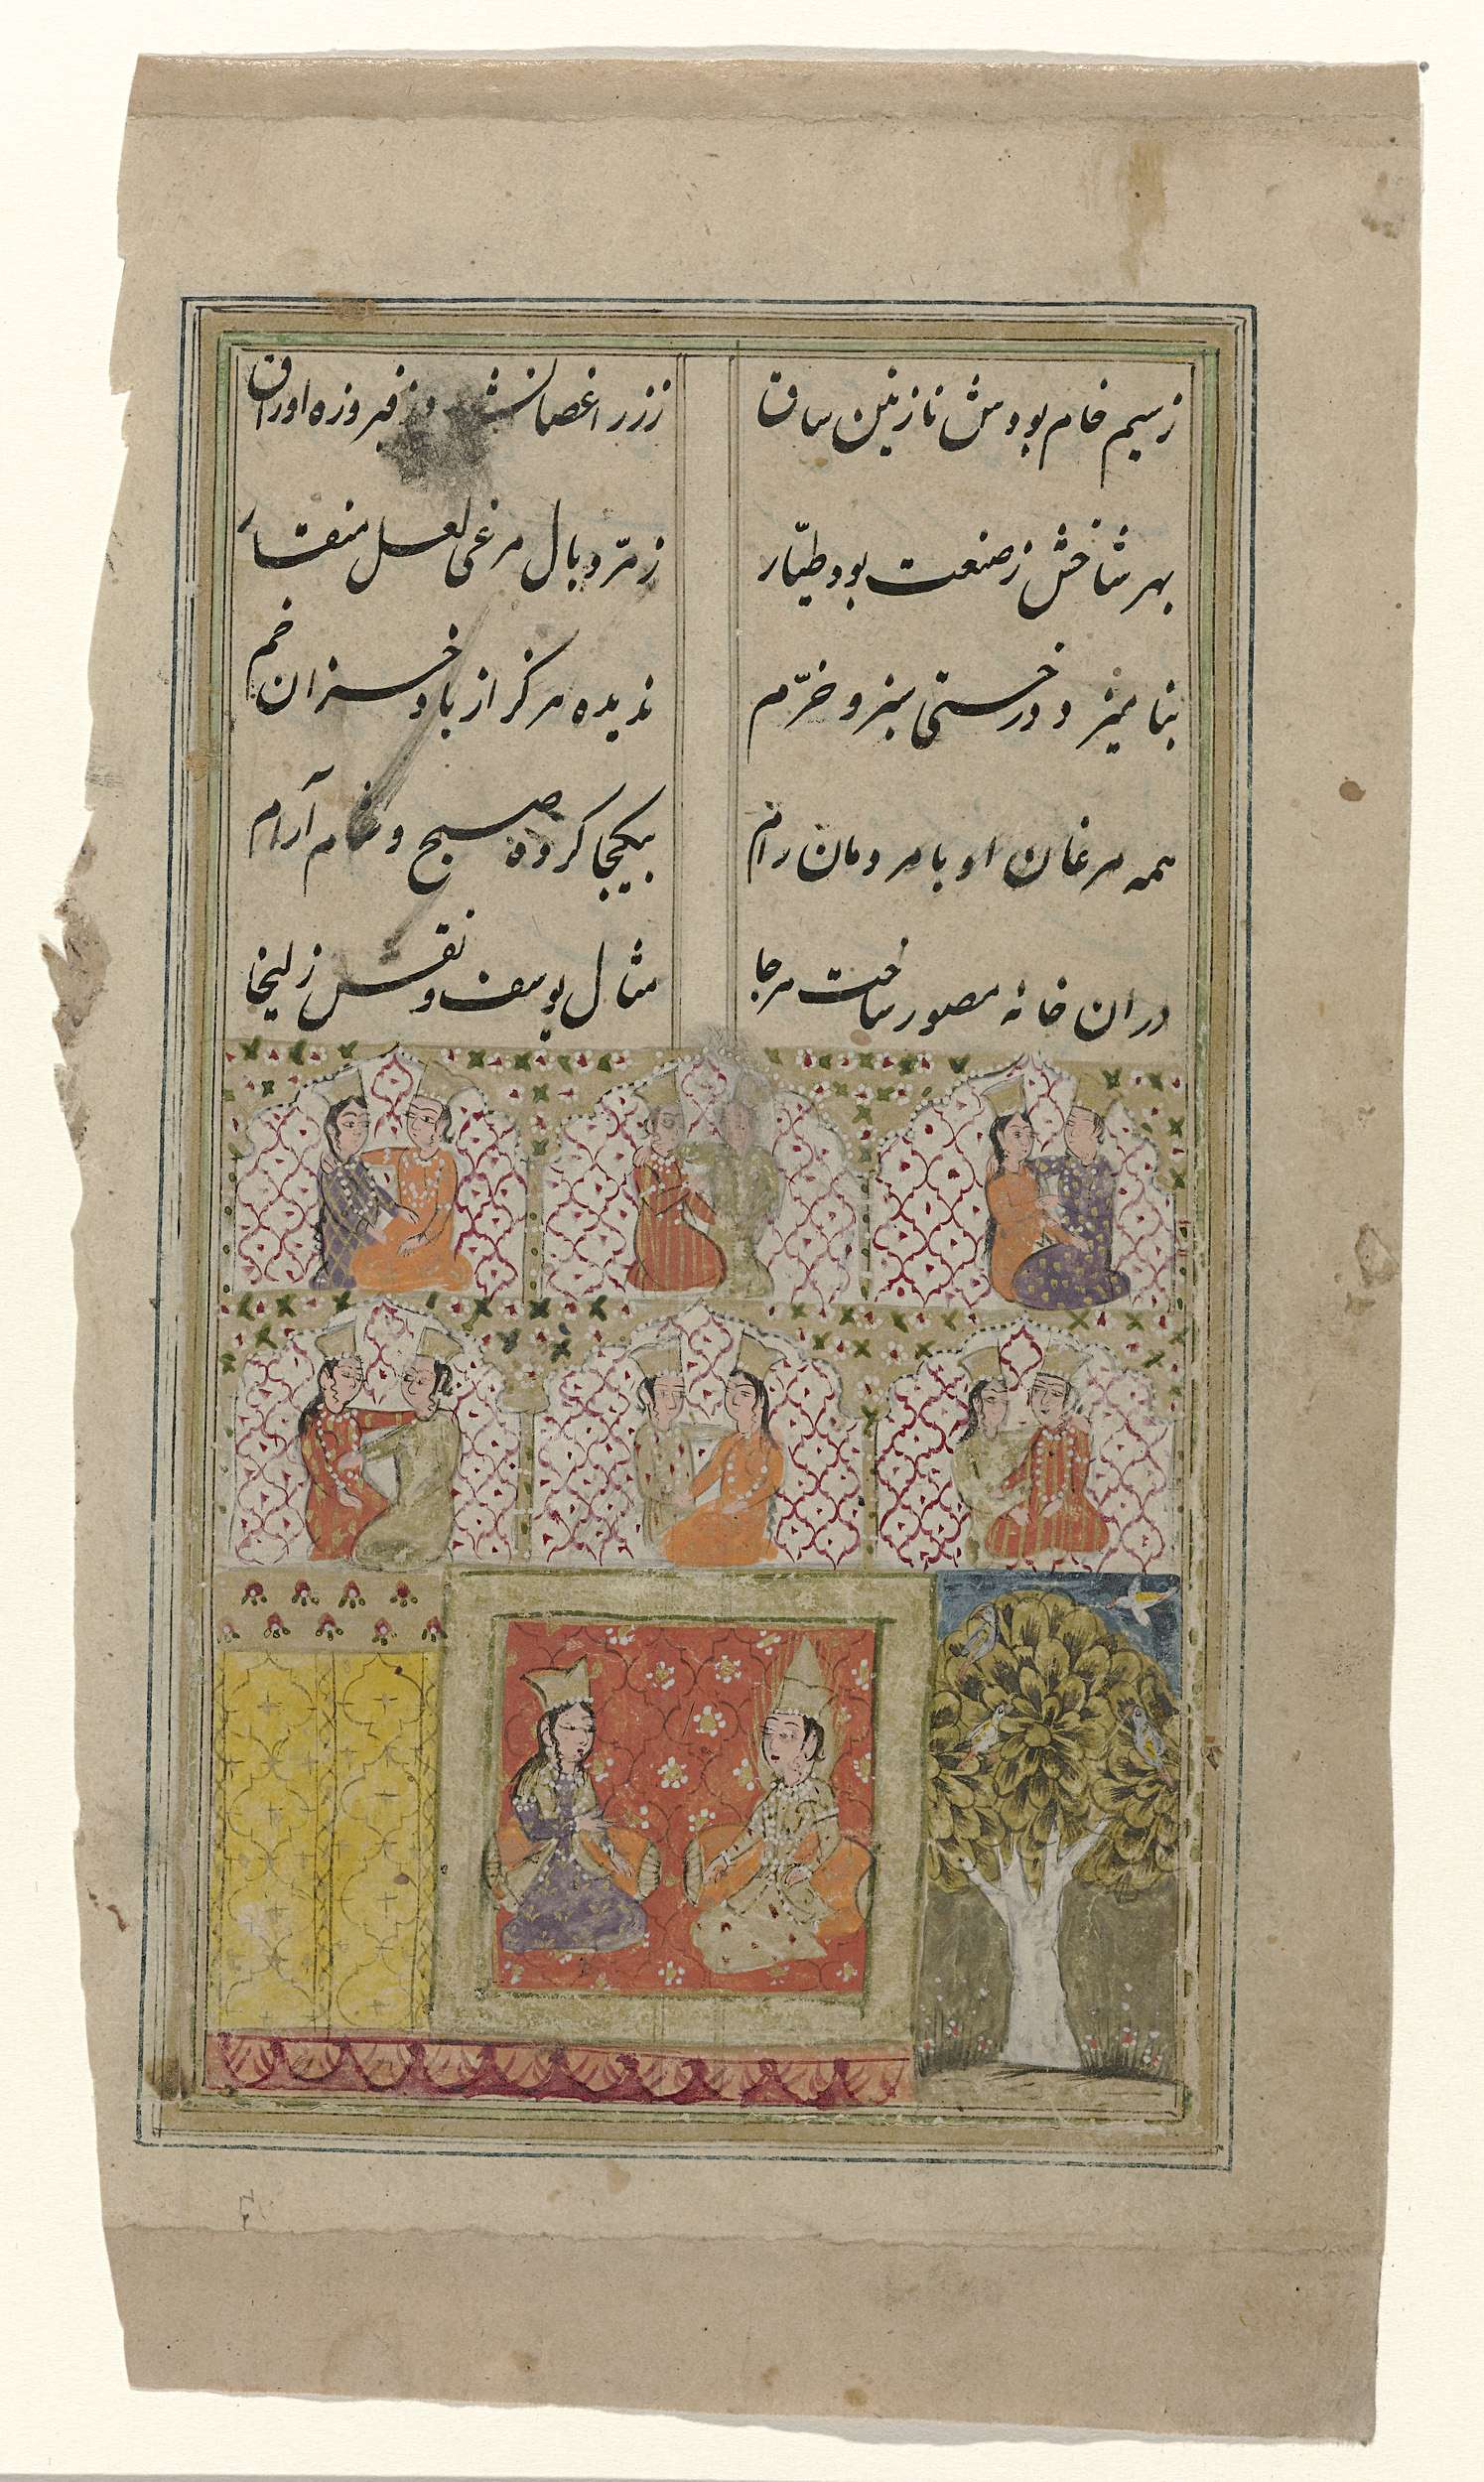 زسیم خام بودش نازنین ساق ززر اغصانش وز فیروزه اوراق
بهر شاخش زصنعت بود طیّار زمرّد بال مرغی لعل منقار
بنامیزد درختی سبز و خرّم ندیده هرگز از باد خزان خم
همه مرغان او با مردمان رام بیکجا کرده صبح و شام آرام
دران خانه مصور ساخت هرجا مثال یوسف و نقش زلیخا